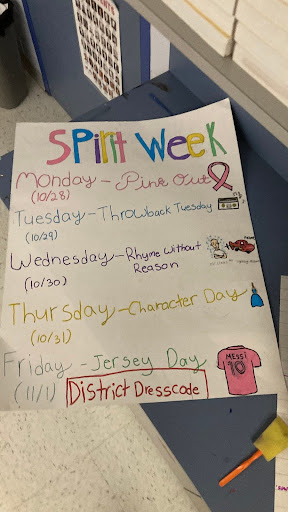 Spirit Week
Monday - Pink Out
(10/28)
Tuesday - Throwback Tuesday
(10/29)
Wednesday - Rhyme Without
Reason
(10/30)
Thursday - Character Day
(10/31)
Friday - Jersey Day
(11/1) District Dresscode
MESSI
10